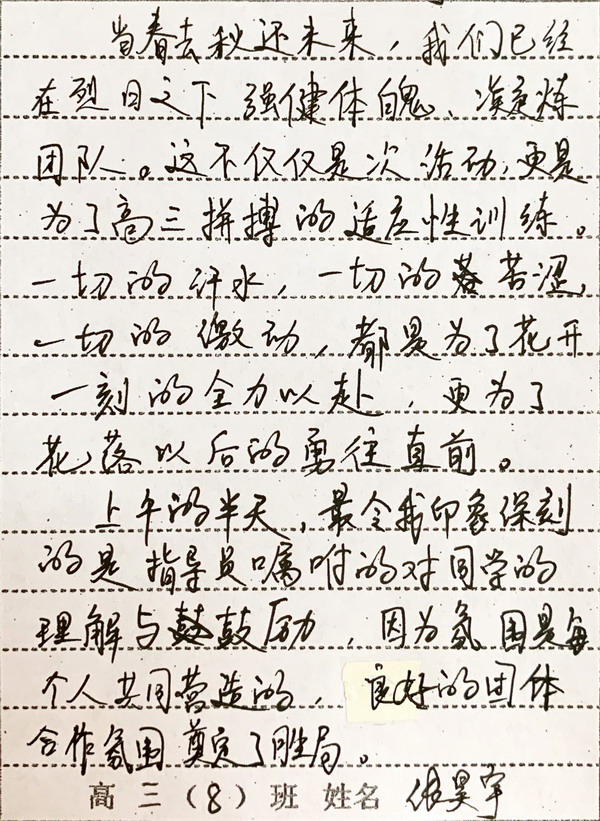 当春去秋还未来，我们已经
在烈日之下强健体魄、淬炼
团队。这不仅仅是次活动，更是
为了高三拼搏的适应性训练。
一切的汗水，一切的苦涩，
一切的激动，都是为了花开
一刻的全力以赴，更为了
花落以后的勇往直前。
上午的半天，最令我印象深刻
的是指导员嘱咐的对同学的
理解与鼓励，因为氛围是每
个人共同营造的，良好的团体
合作氛围奠定了胜局。
高三（8）班 姓名 张昊宇